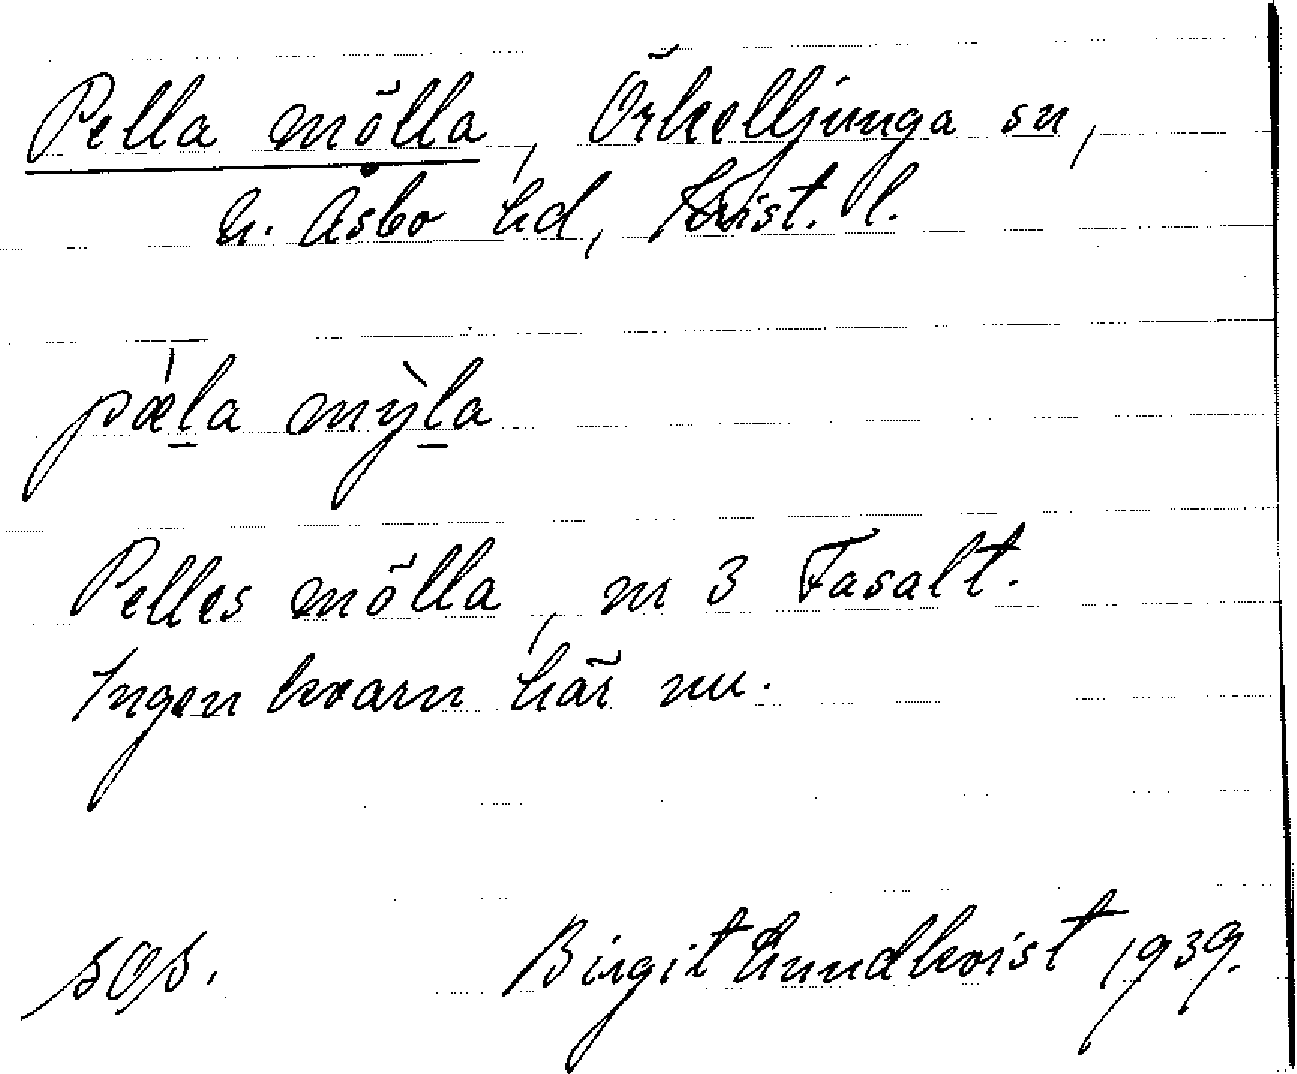 Pella mölla, Örkelljunga sn,
N. Åsbo hd, Krist. l.
pæ̀l̲a mỳl̲a
Pelles mölla, nr 3 Fasalt.
Ingen kvarn här nu.
sgs. Birgit Lundkvist 1939.